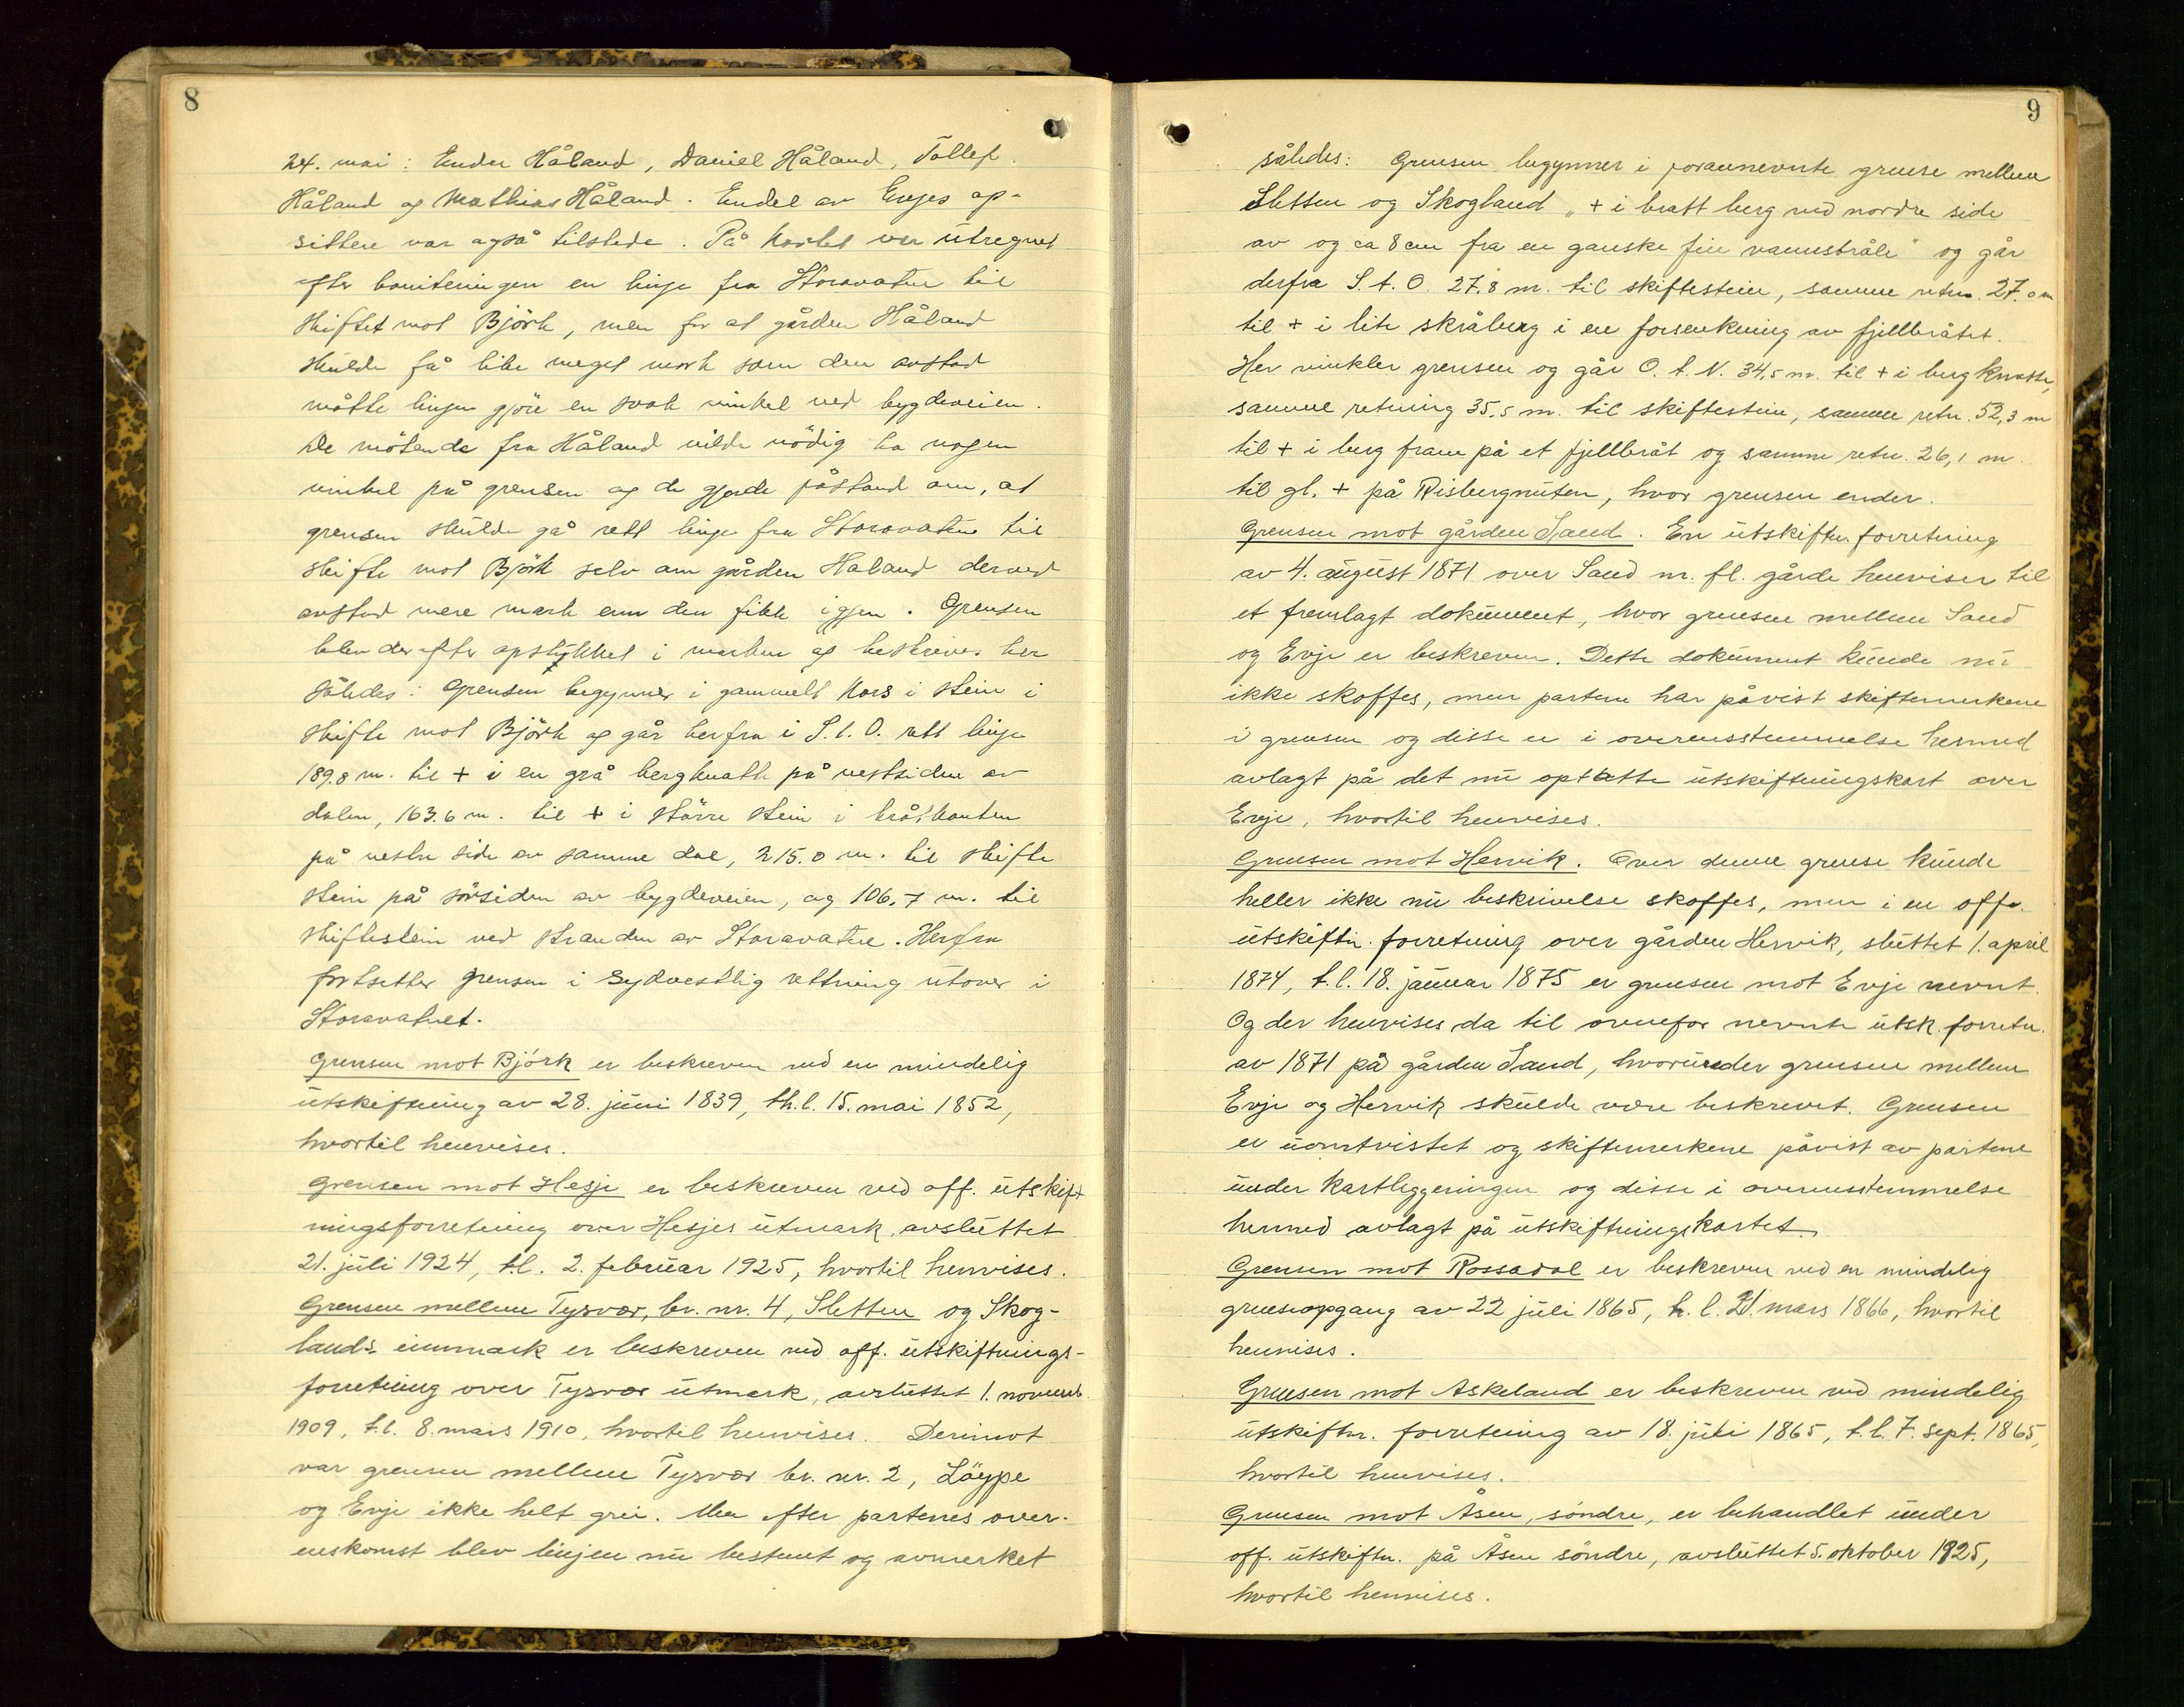 8
24. mai: Endre Håland, Daniel Håland, Tollef
Håland og Mathias Håland. Endel av Evjes op-
sittere var også tilstede. På kartet var utregnet
efter boniteringen en linje fra Storavatne til
skiftet mot Björk, men for at gården Håland
skulde få like meget mark som den avstod
måtte linjen gjöre en svak vinkel ved bygdeveien.
De mötende fra Håland vilde nödig ha nogen
vinkel på grensen og de gjorde påstand om, at
grensen skulde gå rett linje fra Storavatne til
skifte mot Björk selv om gården Håland derved
avstod mere mark enn den fikk igjen. Grensen
blev derefter opstykket i marken og beskrives her
således: Grensen begynner i gammelt kors i stein i
skifte mot Björk og går herfra i S.t.O. rett linje
189.8 m. til + i en grå bergknatt på vestsiden av
dalen, 163.6 m. til + i större stein i bråtkanten
på vestre side av samme dal, 215.0 m. til skifte
stein på sörsiden av bygdeveien, og 106.7 m. til
skiftestein ved stranden av Storavatne. Herfra
fortsetter grensen i sydvestlig rettning utover i
Storavatnet.
Grensen mot Björk er beskreven ved en mindelig
utskiftning av 28. juni 1839, th.l. 15. mai 1852,
hvortil henvises.
Grensen mot Hesje er beskreven ved off. utskift
ningsforretning over Hesjes utmark, avsluttet
21. juli 1924, t.l. 2. februar 1925, hvortil henvises.
Grensen mellem Tysvær, br. nr. 4, Sletten og Skog-
lands innmark er beskreven ved off. utskiftnings-
forretning over Tysvær utmark, avsluttet 1. novemb.
1909, t.l. 8. mars 1910, hvortil henvises. Derimot
var grensen mellem Tysvær br. nr. 2, Löype
og Evje ikke helt grei. Men efter partenes over-
enskomst blev linjen nu bestemt og avmerket
9
således: Grensen begynner i forannevnte grense mellem
Sletten og Skogland „+ i bratt berg ved nordre side
av og ca 8 cm fra en ganske fin vannstråle" og går
derfra S.t.O. 27.8 m. til skiftestein, samme retn. 27.0 m
til + i lite skråberg i en forsenkning av fjellbråtet.
Her vinkler grensen og går O.t.N. 34,5 m. til + i berg knatte,
samme retning 35.5 m. til skiftestein, samme retn. 52,3 m
til + i berg fram på et fjellbråt og samme retn. 26,1 m
til gl. + på Risbergnuten, hvor grensen ender.
Grensen mot gården Sand. En utskiftn. forretning
av 4. august 1871 over Sand m. fl. gårde henviser til
et fremlagt dokument, hvor grensen mellem Sand
og Evje er beskreven. Dette dokument kunde nu
ikke skaffes, men partene har påvist skiftemerkene
i grensen og disse er i overensstemmelse hermed
avlagt på det nu optatte utskiftningskart over
Evje, hvortil henvises.
Grensen mot Hervik. Over denne grense kunde
heller ikke nu beskrivelse skaffes, men i en off.
utskiftn. forretning over gården Hervik, sluttet 1. april
1874, t.l. 18. januar 1875 er grensen mot Evje nevnt.
Og der henvises da til ovenfor nevnte utsk. forretn.
av 1871 på gården Sand, hvorunder grensen mellem
Evje og Hervik skulde være beskrevet. Grensen
er uomtvistet og skiftemerkene påvist av partene
under kartleggeringen og disse i overensstemmelse
hermed avlagt på utskiftningskartet.
Grensen mot Rossadal er beskreven ved en mindelig
grenseopgang av 22 juli 1865, t.l. 21. mars 1866, hvortil
henvises.
Grensen mot Askeland er beskreven ved mindelig
utskiftn. forretning av 18. juli 1865, t.l. 7. sept. 1865,
hvortil henvises.
Grensen mot Åsen, söndre, er behandlet under
off. utskiftn. på Åsen söndre, avsluttet 5. oktober 1925,
hvortil henvises.